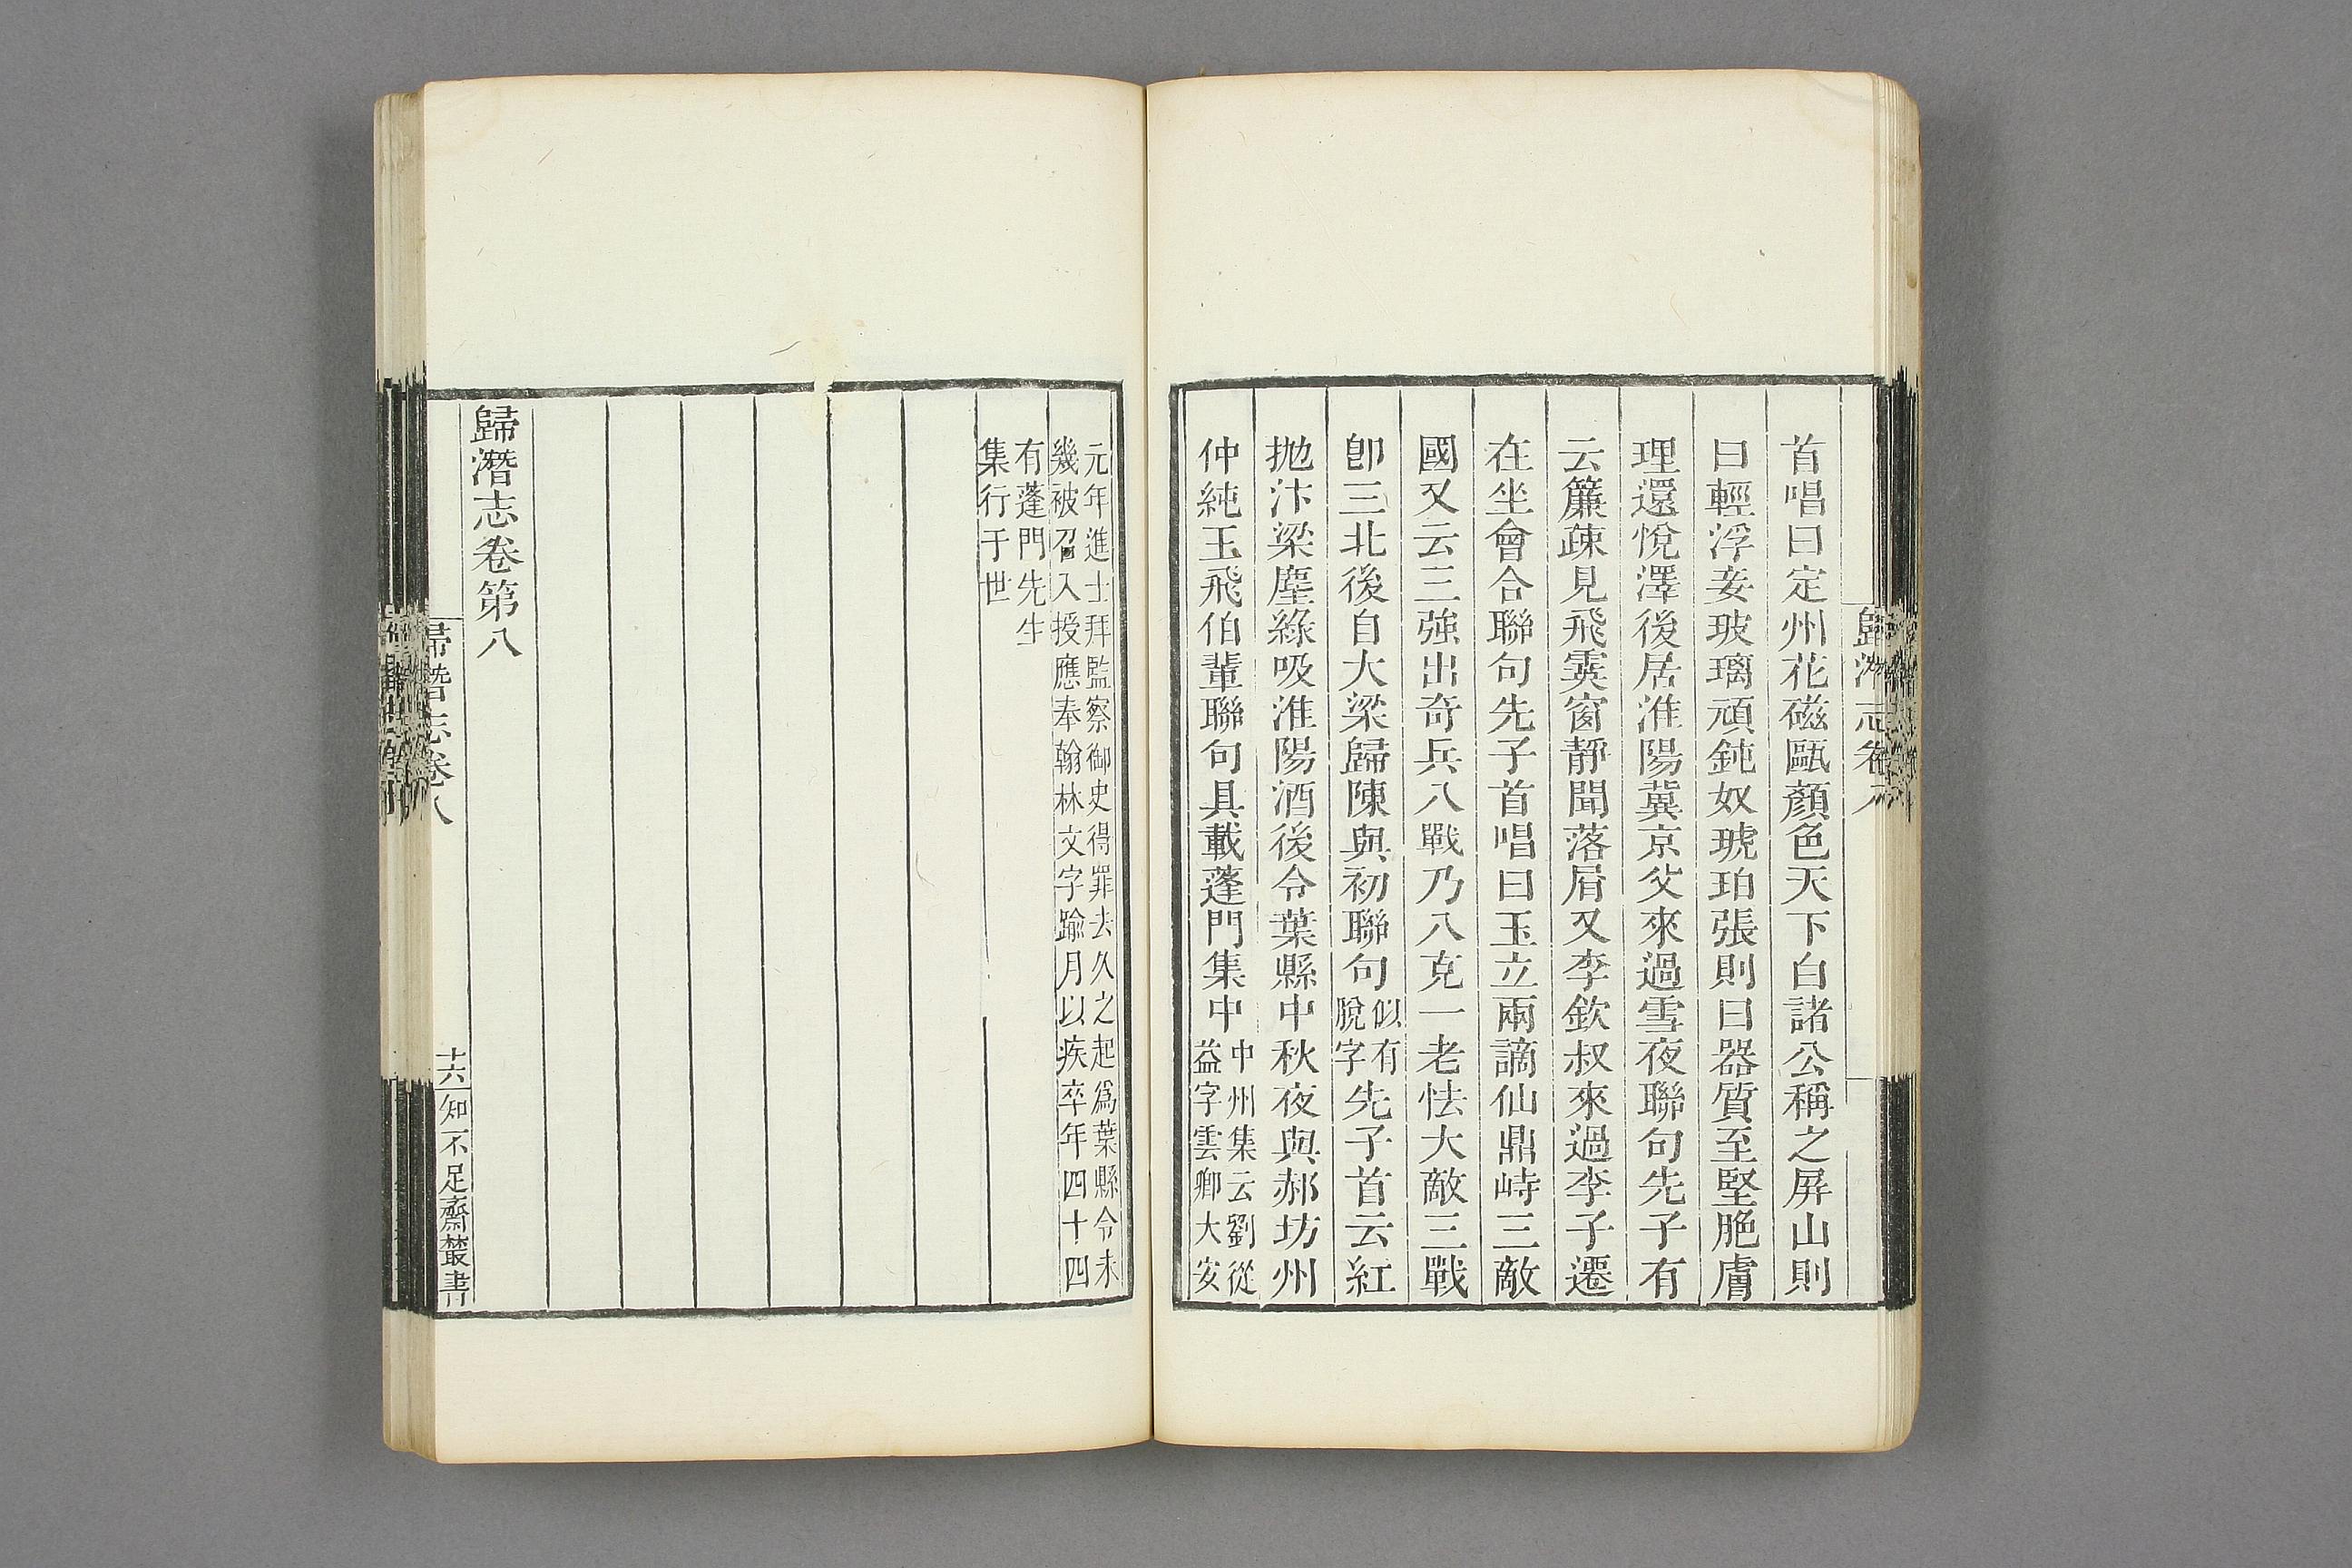 首唱曰定州花磁甌顏色天下白諸公稱之屏山則
曰輕浮妾玻璃頑鈍奴琥珀張則曰器質至堅脃膚
理還悅澤後居淮陽冀京父來過雪夜聯句先子有
云簾疎見飛霙窗靜聞落屑又李欽叔來過李子遷
在坐會合聯句先子首唱曰玉立兩謫仙鼎峙三敵
國又云三強出奇兵八戰乃八克一老怯大敵三戰
卽三北後自大梁歸陳與初聯句似有脫字先子首云紅
拋汴梁塵綠吸淮陽酒後令葉縣中秋夜與郝坊州
仲純玉飛伯輩聯句具載蓬門集中中州集云劉從益字雲卿大安
元年進士拜監察御史得罪去久之起爲葉縣令未
幾被召入授應奉翰林文字踰月以疾卒年四十四
有蓬門先生
集行于世
歸潛志卷第八
歸潛志卷八
十六
知不足齋叢書